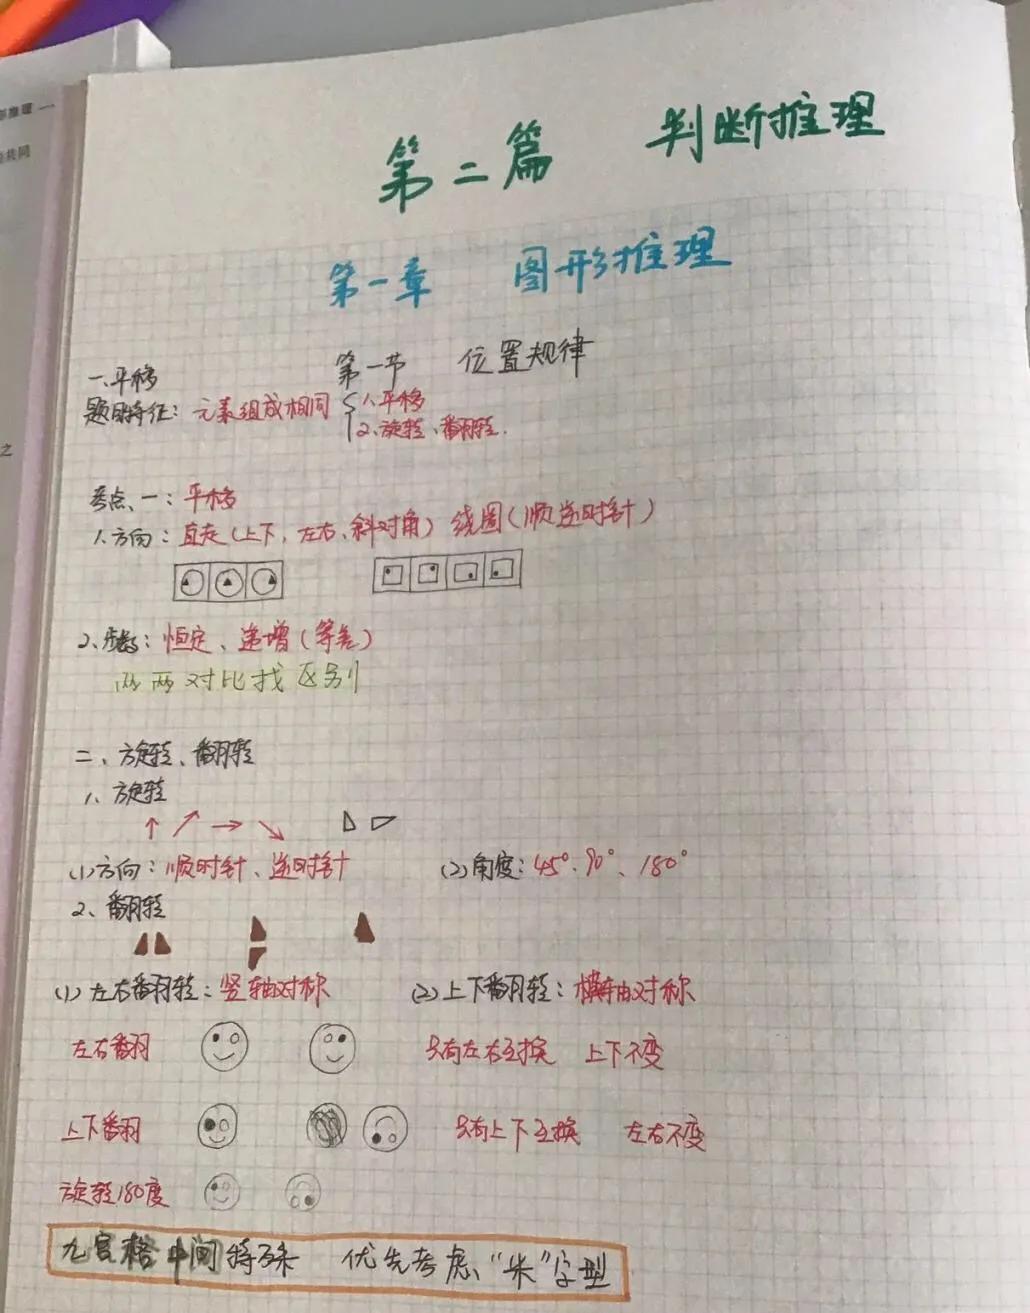 部推理 一
共同
之
第二篇 判断推理
第一章 图形推理
第一节 位置规律
一、平移
题目特征：元素组成相同 1、平移
2、旋转、翻转.
考点一：平移
1、方向：直走（上下、左右、斜对角） 绕圈（顺逆时针）
2、步数：恒定、递增（等差）
两两对比找区别
二、旋转、翻转
1、旋转
(1)方向：顺时针、逆时针 (2)角度：45°、90°、180°
2、翻转
(1)左右翻转：竖轴对称 (2)上下翻转：横轴对称
左右翻 只有左右互换 上下不变
上下翻 只有上下互换 左右不变
旋转180度
九宫格中间特殊 优先考虑“米”字型